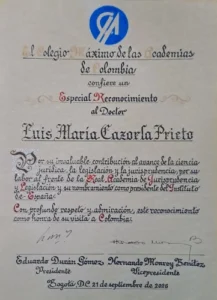 El Colegio Máximo de las Academias
de Colombia
confiere un
Especial Reconocimiento
al Doctor
Luis María Cazorla Prieto
Por su invaluable contribución al avance de la ciencia
jurídica, la legislación y la jurisprudencia, por su
labor al frente de la Real Academia de Jurisprudencia
y Legislación y su nombramiento como presidente del Instituto
de España
Con profundo respeto y admiración, este reconocimiento
como honra de su visita a Colombia
Eduardo Durán Gómez Hernando Monroy Benítez
Presidente Vicepresidente
Bogotá D.C 21 de septiembre de 2018